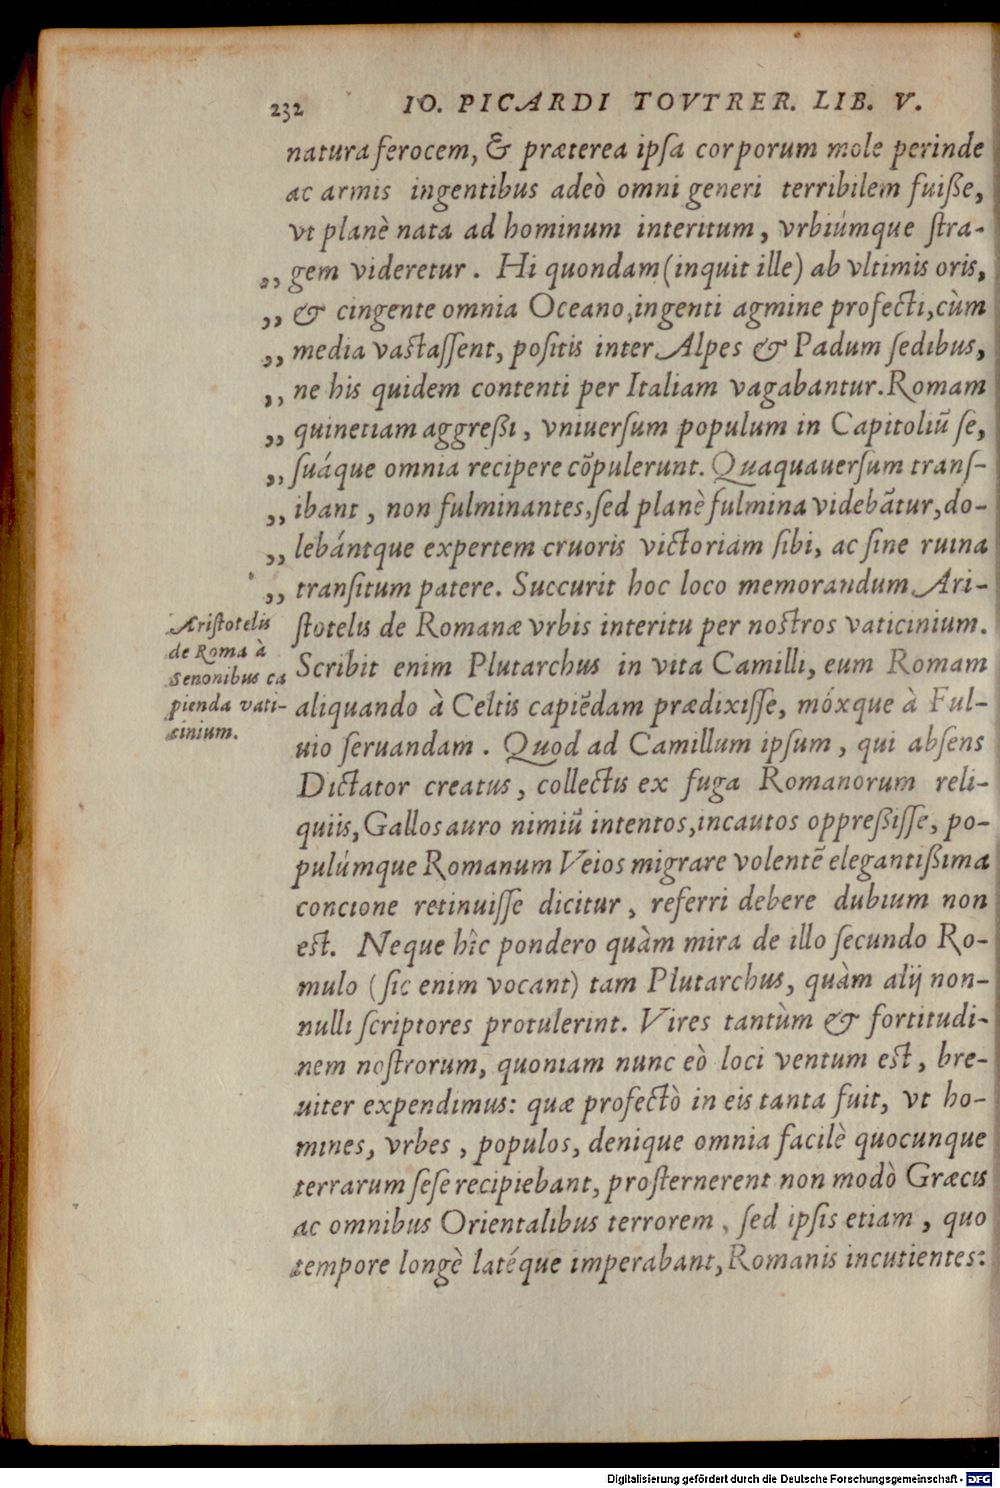 232 IO. PICARDI TOVTRER. LIB. V.
natura ferocem, & præterea ipſa corporum mole perinde
ac armis ingentibus adeò omni generi terribilem fuiße,
vt planè nata ad hominum interitum, vrbiúmque ſtra-
„ gem videretur. Hi quondam (inquit ille) ab vltimis oris,
„ & cingente omnia Oceano, ingenti agmine profecti, cùm
„ media vaſtaſſent, poſitis inter Alpes & Padum ſedibus,
„ ne his quidem contenti per Italiam vagabantur. Romam
„ quinetiam aggreßi, vniuerſum populum in Capitoliũ ſe,
„ ſuáque omnia recipere cõpulerunt. Quaquauerſum tranſ-
„ ibant, non fulminantes, ſed planè fulmina videbãtur, do-
„ lebántque expertem cruoris victoriam ſibi, ac ſine ruina
„ tranſitum patere. Succurit hoc loco memorandum Ari-
ſtotelis de Romanæ vrbis interitu per noſtros vaticinium.
Scribit enim Plutarchus in vita Camilli, eum Romam
aliquando à Celtis capiẽdam prædixiſſe, móxque à Ful-
uio ſeruandam. Quod ad Camillum ipſum, qui abſens
Dictator creatus, collectis ex fuga Romanorum reli-
quiis, Gallos auro nimiũ intentos, incautos oppreßiſſe, po-
pulúmque Romanum Veios migrare volentẽ elegantißima
concione retinuiſſe dicitur, referri debere dubium non
eſt. Neque hîc pondero quàm mira de illo ſecundo Ro-
mulo (ſic enim vocant) tam Plutarchus, quàm alij non-
nulli ſcriptores protulerint. Vires tantùm & fortitudi-
nem noſtrorum, quoniam nunc eò loci ventum eſt, bre-
uiter expendimus: quæ profectò in eis tanta fuit, vt ho-
mines, vrbes, populos, denique omnia facilè quocunque
terrarum ſeſe recipiebant, proſternerent non modò Græcis
ac omnibus Orientalibus terrorem, ſed ipſis etiam, quo
tempore longè latéque imperabant, Romanis incutientes:
Ariſtotelis
de Roma à
Senonibus ca
pienda vati-
cinium.
Digitalisierung gefördert durch die Deutsche Forschungsgemeinschaft - DFG